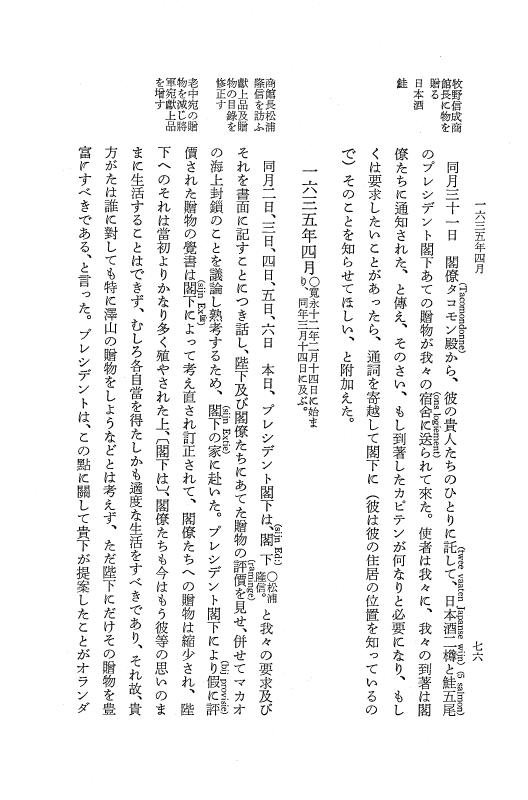 一六三五年四月
七六
牧野信成商
館長に物を
贈る
日本酒
鮭
同月三十一日　閣僚タコモン殿から、彼の貴人たちのひとりに託して、日本酒二樽と鮭五尾
(Tacomondonne)
(twee vaaten Japanse wijn)
(5 salmon)
のプレシデント閣下あての贈物が我々の宿舍に送られて來た。使者は我々に、我々の到著は閣
(ons logiement)
僚たちに通知された、と傳え、そのさい、もし到著したカピテンが何なりと必要になり、もし
くは要求したいことがあったら、通詞を寄越して閣下に（彼は彼の住居の位置を知っているの
で）そのことを知らせてほしい、と附加えた。
一六三五年四月
○寬永十二年二月十四日に始ま
り、同年三月十四日に及ぶ。
商館長松浦
隆信を訪ふ
獻上品及贈
物の目錄を
修正す
老中宛の贈
物を減じ將
軍宛獻上品
を增す
同月二日、三日、四日、五日、六日　本日、プレシデント閣下は、閣下
(sijn Ed:)
○松浦
隆信。
と我々の要求及び
それを書面に記すことにつき話し、陛下及び閣僚たちにあてた贈物の評價を見せ、併せてマカオ
の海上封鎖のことを議論し熟考するため、閣下の家に赴いた。プレシデント閣下により假に評
(sijn Extie)
(bij provisie)
價された贈物の覺書は閣下によって考え直され訂正されて、閣僚たちへの贈物は縮少され、陛
下へのそれは當初よりかなり多く殖やされた上、〔閣下は〕、閣僚たちも今はもう彼等の思いのま
まに生活することはできず、むしろ各自當を得たしかも適度な生活をすべきであり、それ故、貴
方がたは誰に對しても特に澤山の贈物をしようなどとは考えず、ただ陛下にだけその贈物を豊
富にすべきである、と言った。プレシデントは、この點に關して貴下が提案したことがオランダ